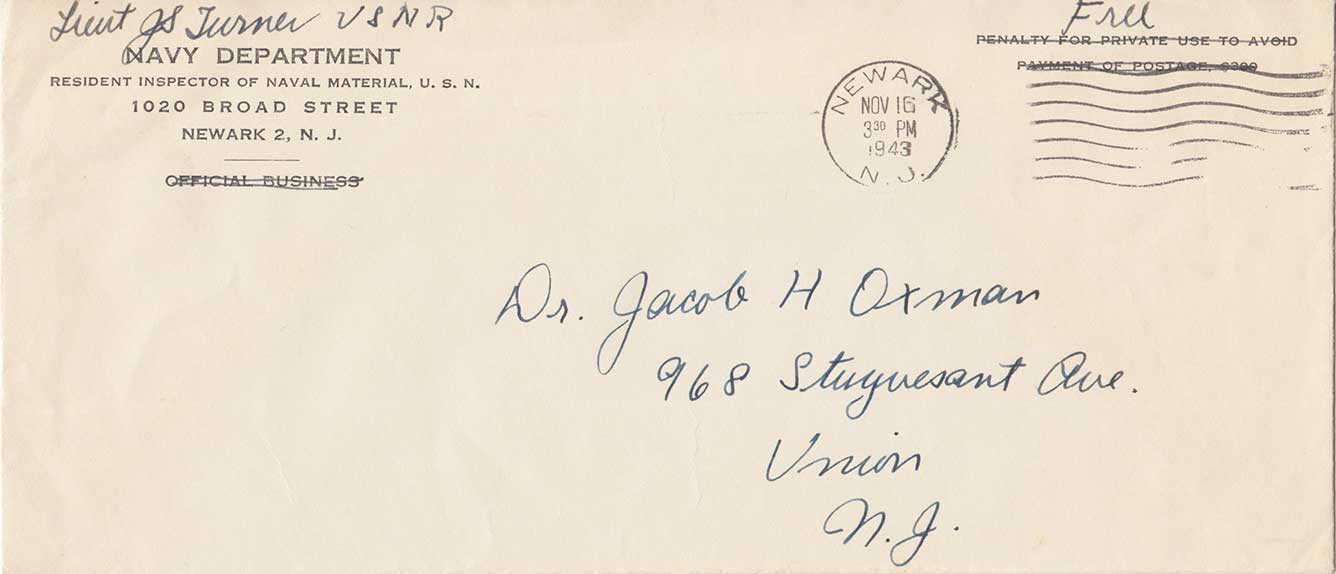 Lieut JS Turner USNR
NAVY DEPARTMENT
RESIDENT INSPECTOR OF NAVAL MATERIAL, U. S. N.
1020 BROAD STREET
NEWARK 2, N. J.
OFFICIAL BUSINESS
Free
PENALTY FOR PRIVATE USE TO AVOID
PAYMENT OF POSTAGE, $300
NEWARK
NOV 16
3 30 PM
1943
N. J.
Dr. Jacob H Oxman
968 Stuyvesant Ave.
Union
N. J.